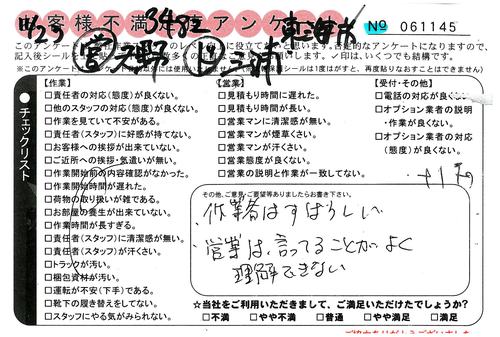 10/23 3482 東海市
お客様不満足度アンケート № 061145
営 天野 作 三浦
【作業】
□責任者の対応(態度)が良くない。
□他のスタッフの対応(態度)が良くない。
□作業を見ていて不安がある。
□責任者(スタッフ)に好感が持てない。
□お客様への挨拶が出来ていない。
□ご近所への挨拶・気遣いが無い。
□作業開始前の内容確認がなかった。
□作業開始時間が遅れた。
□荷物の取り扱いが雑である。
□お部屋の養生が出来ていない。
□作業時間が長すぎる。
□責任者(スタッフ)に清潔感が無い。
□責任者(スタッフ)が汗くさい。
□トラックが汚い。
□梱包資材が汚い。
□運転が不安(下手)である。
□靴下の履き替えをしてない。
□スタッフにやる気がみられない。
【営業】
□見積もり時間に遅れた。
□見積もり時間が長い。
□営業マンに清潔感が無い。
□営業マンが煙草くさい。
□営業マンが汗くさい。
□営業態度が良くない。
□営業の説明と作業が一致してない。
【受付・その他】
□電話の対応が良くない。
□オプション業者の説明
・作業が良くない。
□オプション業者の対応
(態度)が良くない。
チェックリスト
その他、ご意見・ご要望等ありましたらお書き下さい。
作業者はすばらしい
営業は、言ってることがよく
理解できない
☆当社をご利用いただきまして、ご満足いただけたでしょうか?
□不満 □やや不満 □普通 □やや満足 □満足
ご協力ありがとうございました